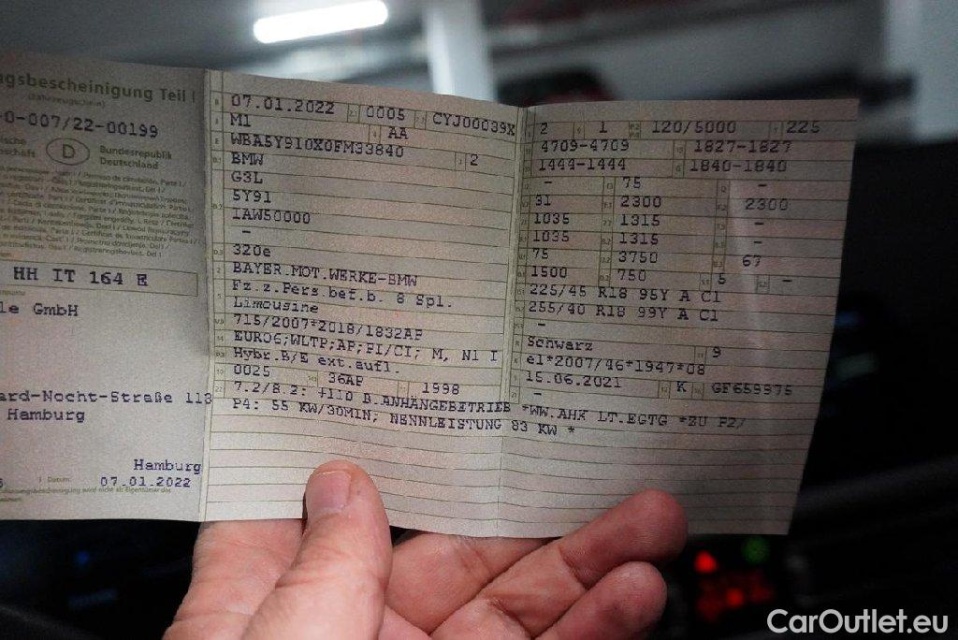 gsbescheinigung Teil I
-0-007/22-00199
D
Bundesrepublik
Deutschland
HH IT 164 E
le GmbH
ard-Nocht-Straße 113
Hamburg
Hamburg
Datum
07.01.2022
07.01.2022 0005 CYJ00039X
M1 AA
WBA5Y910X0FM33840 2
BMW
G3L
5Y91
IAW50000
-
320e
BAYER.MOT.WERKE-BMW
Fz.z.Pers.bef.b. 8 Spl.
Limousine
715/2007*2018/1832AP
EURO6;WLTP;AP;PI/CI; M, N1 I
Hybr.B/E ext.aufl.
0025 36AP 1998
7.2/8.2: +110 B.ANHÄNGEBETRIEB *WW.AHK LT.EGTG *ZU P2/
P4: 55 KW/30MIN; NENNLEISTUNG 83 KW *
2 1 120/5000 225
4709-4709 1827-1827
1444-1444 1840-1840
- 75 -
31 2300 2300
1035 1315 -
1035 1315 -
75 3750 67
1500 750 5 -
225/45 R18 95Y A C1
255/40 R18 99Y A C1
-
Schwarz 9
e1*2007/46*1947*08
15.06.2021 K GF659975
-
CarOutlet.eu